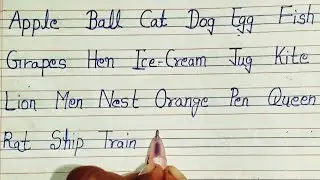 Apple Ball Cat Dog Egg Fish
Grapes Hen Ice-Cream Jug Kite
Lion Men Nest Orange Pen Queen
Rat Ship Train